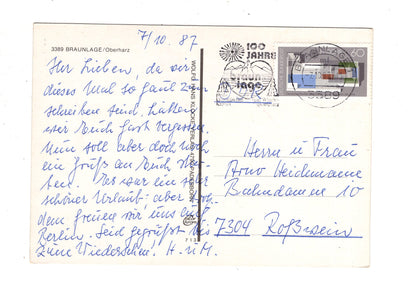 3389 BRAUNLAGE/Oberharz
7/10. 87
Ihr Lieben, da wir
dieses Mal so faul zum
schreiben sind, hätten
wir Euch fast vergessen.
Nun soll aber doch noch
ein Gruß an Euch
ben. Es war ein sehr
schöner Urlaub; aber trotz-
dem freuen wir uns auf
Berlin. Seid gegrüßt bis
zum Wiedersehn! H. u M.
100
JAHRE
Braun
lage
BRAUNLAGE
3389
60
Herrn u Frau
Arno
10
7304 Roßwein